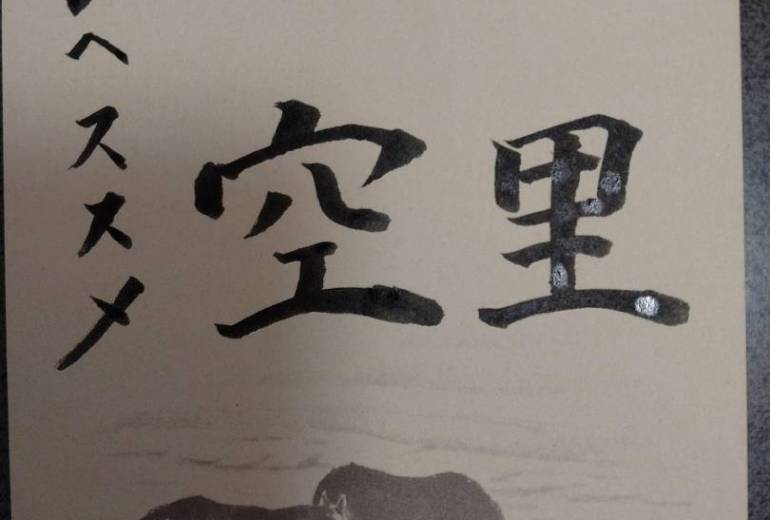 里
空
ヘススメ